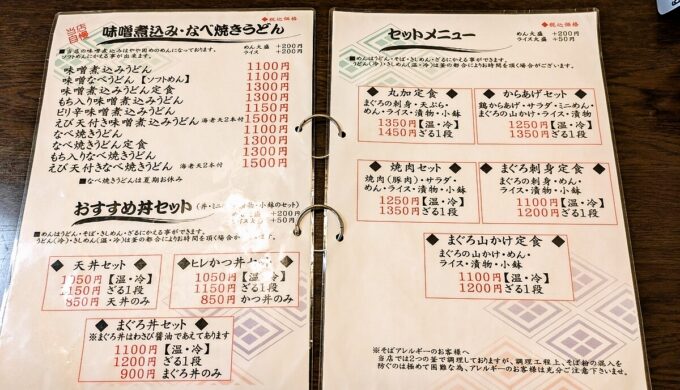 当店自慢
味噌煮込み・なべ焼きうどん
◆税込価格
■当店の味噌煮込みはやや固めのめんになっております。
ソフトめんにかえる事が出来ます。
めん大盛 +200円
ライス +200円
味噌煮込みうどん 1100円
味噌なべうどん【ソフトめん】 1100円
味噌煮込みうどん定食 1300円
もち入り味噌煮込みうどん 1300円
ピリ辛味噌煮込みうどん 1150円
えび天付き味噌煮込みうどん 海老天2本付 1500円
なべ焼きうどん 1100円
なべ焼きうどん定食 1300円
もち入りなべ焼きうどん 1300円
えび天付きなべ焼きうどん 海老天2本付 1500円
■なべ焼きうどんは夏期お休み
おすすめ丼セット(丼・ミニ・漬物・小鉢のセット)
めん大盛 +200円
ライス大盛 +50円
■めんはうどん・そば・きしめん・ざるにかえる事ができます。
うどん(冷)・きしめん(温・冷)は釜の都合によりお時間を頂く場合がございます。
◆天丼セット◆
1050円【温・冷】
1150円 ざる1段
850円 天丼のみ
◆ヒレかつ丼セット◆
1050円【温・冷】
1150円 ざる1段
850円 かつ丼のみ
◆まぐろ丼セット◆
※まぐろ丼はわさび醤油であえてあります
1100円【温・冷】
1200円 ざる1段
900円 まぐろ丼のみ
セットメニュー
◆税込価格
めん大盛 +200円
ライス大盛 +50円
■めんはうどん・そば・きしめん・ざるにかえる事ができます。
うどん(冷)・きしめん(温・冷)は釜の都合によりお時間を頂く場合がございます。
◆丸加定食◆
まぐろの刺身・天ぷら・
めん・ライス・漬物・小鉢
1350円【温・冷】
1450円 ざる1段
◆からあげセット◆
鶏からあげ・サラダ・ミニめん・
まぐろの山かけ・ライス・漬物
1250円【温・冷】
1350円 ざる1段
◆焼肉セット◆
焼肉(豚肉)・サラダ・
めん・ライス・漬物・小鉢
1250円【温・冷】
1350円 ざる1段
◆まぐろ刺身定食◆
まぐろの刺身・めん・
ライス・漬物・小鉢
1100円【温・冷】
1200円 ざる1段
◆まぐろ山かけ定食◆
まぐろの山かけ・めん・
ライス・漬物・小鉢
1100円【温・冷】
1200円 ざる1段
※そばアレルギーのお客様へ
当店では2つの釜で調理しておりますが、調理工程上、そば粉の混入を
防ぐのは極めて困難な為、アレルギーのお客様は充分ご注意下さいませ。